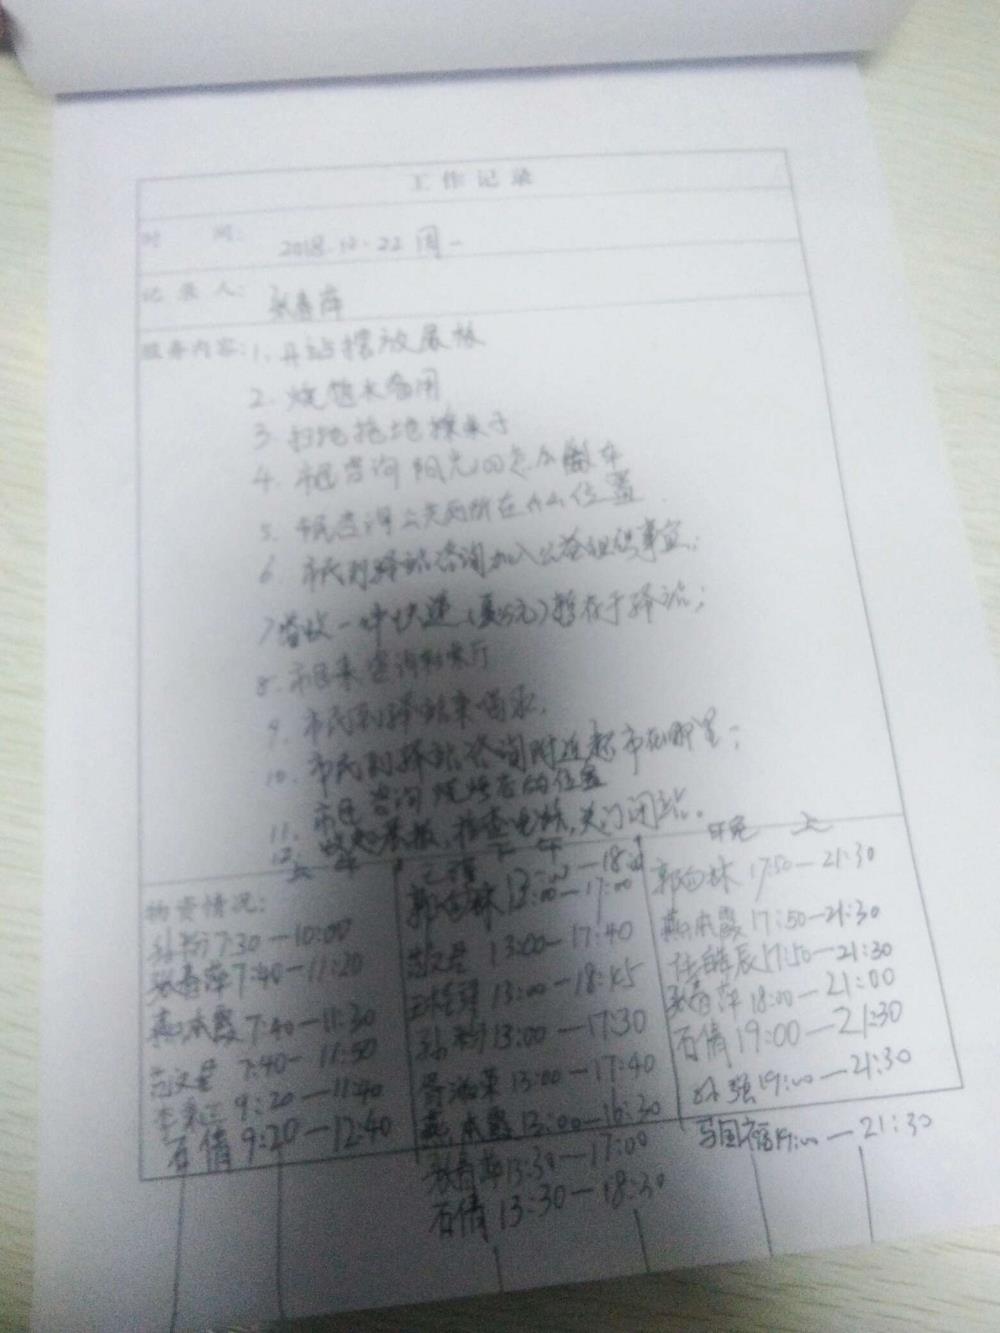 工作记录
时 间: 2018.10.22 周一
记录人: 张春萍
服务内容: 1、开站摆放展板
2、烧热水备用
3 扫地拖地擦桌子
4、市民咨询阳光100怎么做车
5、市民咨询公共厕所在什么位置
6、市民到驿站咨询加入公益组织事宜;
7 暂收一件快递(万元)暂存于驿站;
8、市民来咨询餐厅
9、市民到驿站来喝水.
10、市民到驿站咨询附近超市在哪里;
11、市民咨询烧烤店的位置
12、收起展板,检查电源,关门闭站。
上 午 下 午 晚 上
物资情况:
孙粉 7:30—10:00
张春萍 7:40—11:20
燕本霞 7:40—11:30
范文星 7:40—11:50
9:20—11:40
石倩 9:20—12:40
郭向林 13:00—17:00
范文星 13:00—17:40
13:00—18:45
孙粉 13:00—17:30
13:00—17:40
燕本霞 13:00—16:30
张春萍 13:30—17:00
石倩 13:30—18:30
郭向林 17:50—21:30
燕本霞 17:50—21:30
任皓辰 17:50—21:30
张春萍 18:00—21:00
石倩 19:00—21:30
孙强 19:00—21:30
马国福 19:00—21:30